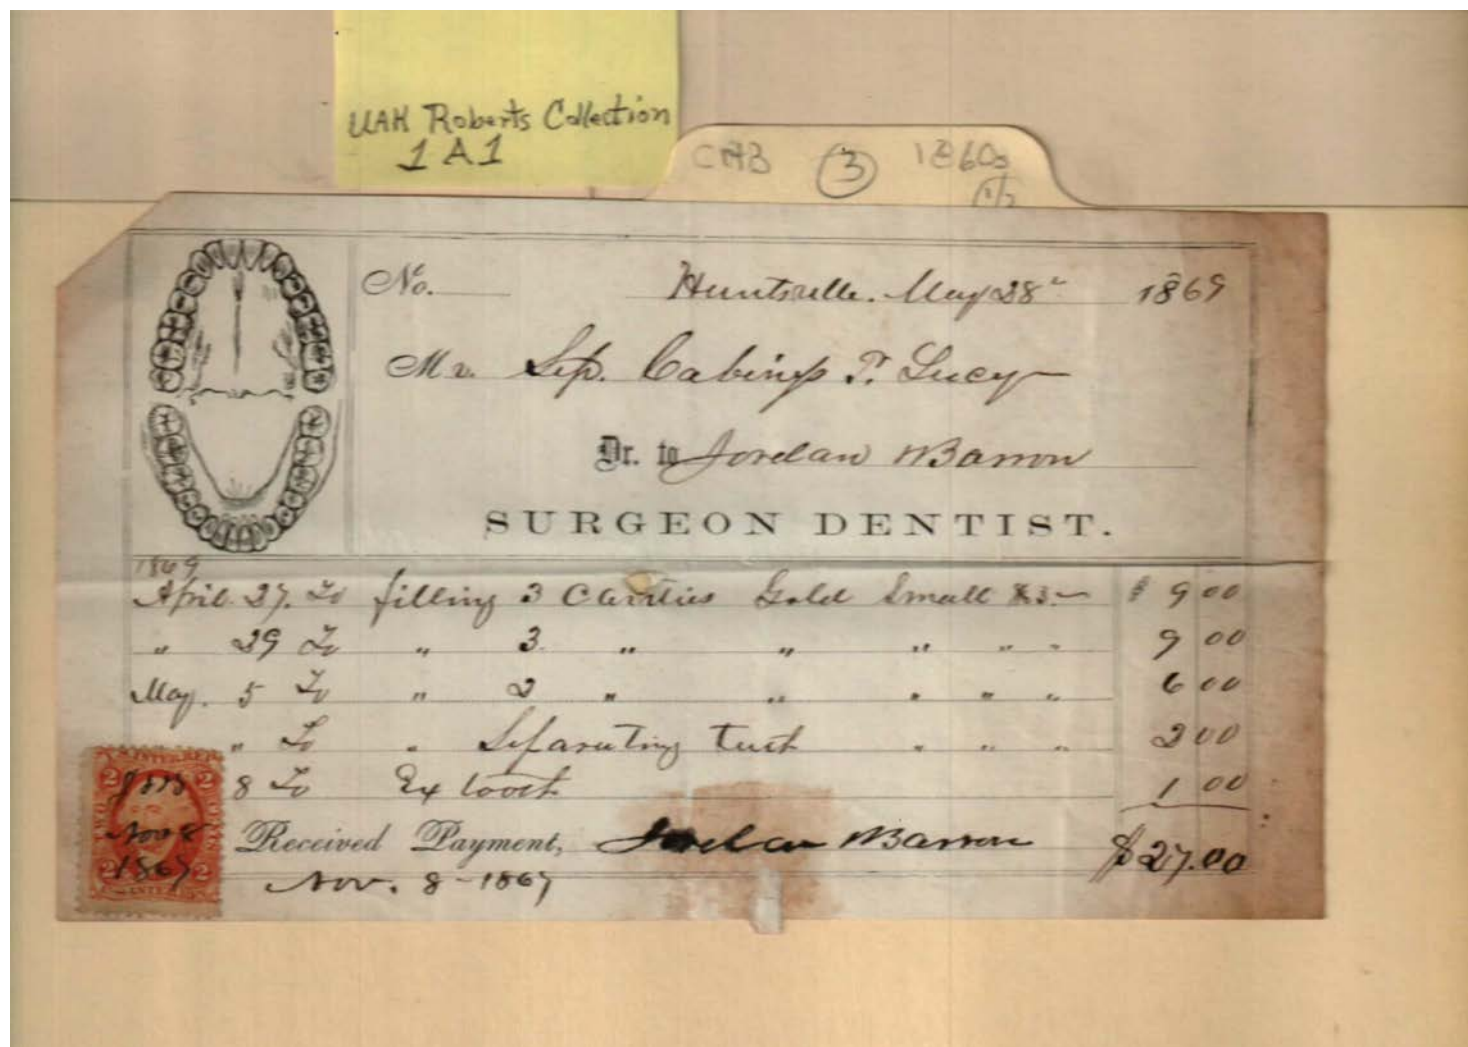 UAH Roberts Collection
1A1
CAB 3 1860s
1/2
No. Huntsville. May 28th 1869
Mr. Sep. Cabiniss T. Lucy
Dr. to Jordan W Barron
SURGEON DENTIST.
1869
April. 27. To filling 3 Cavities Gold Small $3.— $ 9 00
" 29 To " 3 " " " " " 9 00
May. 5 To " 2 " " " " " 6 00
" To " Separating teeth " " " 2 00
8 To Ex tooth 1 00
Received Payment, Jordan W Barron $27.00
Nov. 8 - 1869
INTER. REV.
2 2
TWO CENTS
Nov 8
1869
2 2